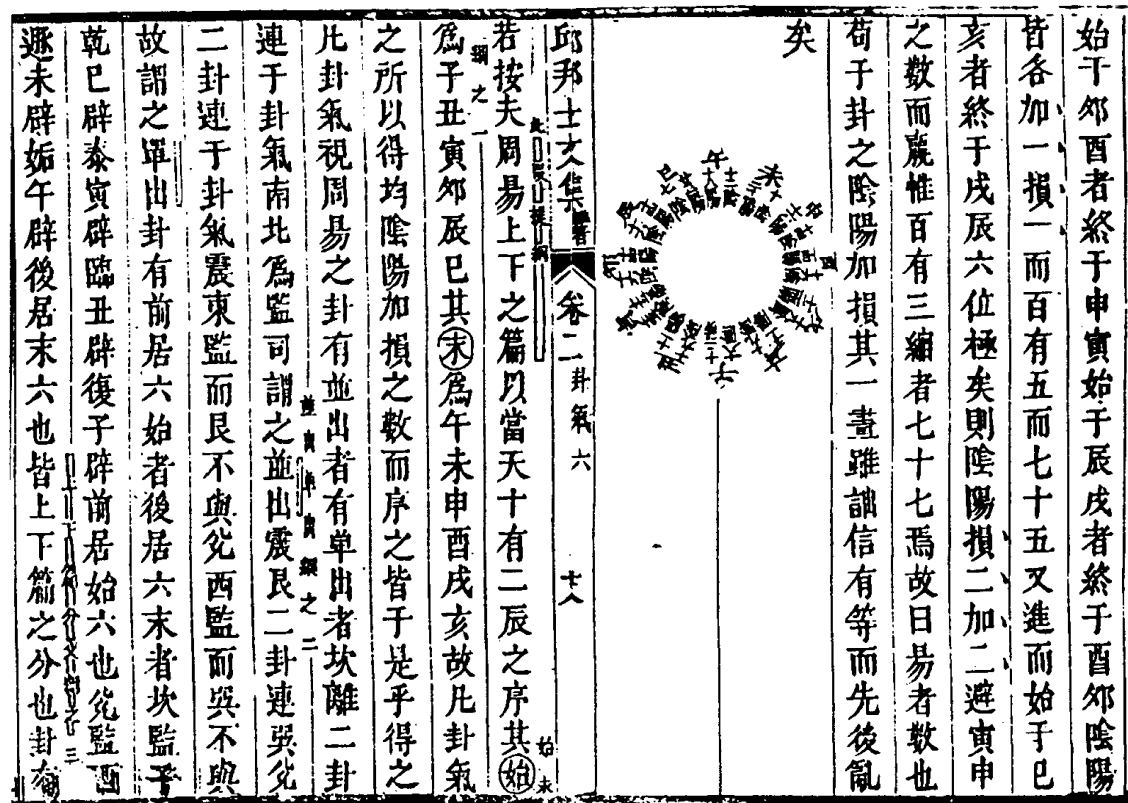 始于夘酉者終于申寅始于辰戌者終于酉夘陰陽
皆各加一損一而百有五而七十五又進而始于巳
亥者終于戌辰六位極矣則陰陽損二加二避寅申
之數而麗惟百有三縮者七十七焉故曰易者數也
苟于卦之陰陽加損其一畫雖詘信有等而先後亂
矣
午
未
申
酉
子
邱邦士文集
卷二 卦氣六
十八
若按夫周易上下之篇以當天十有二辰之序其始
始末
綱之一
爲子丑寅夘辰巳其末爲午未申酉戌亥故凡卦氣
之所以得均陰陽加損之數而序之皆于是乎得之
凡卦氣視周易之卦有並出者有单出者坎離二卦
綱之二
連于卦氣南北爲監司謂之並出震艮二卦連巽兊
二卦連于卦氣震東監而艮不與兊西監而巽不與
故謂之單出卦有前居六始者後居六末者坎監子
乾巳辟泰寅辟臨丑辟復子辟前居始六也兊監酉
遯未辟姤午辟後居末六也皆上下篇之分也卦有